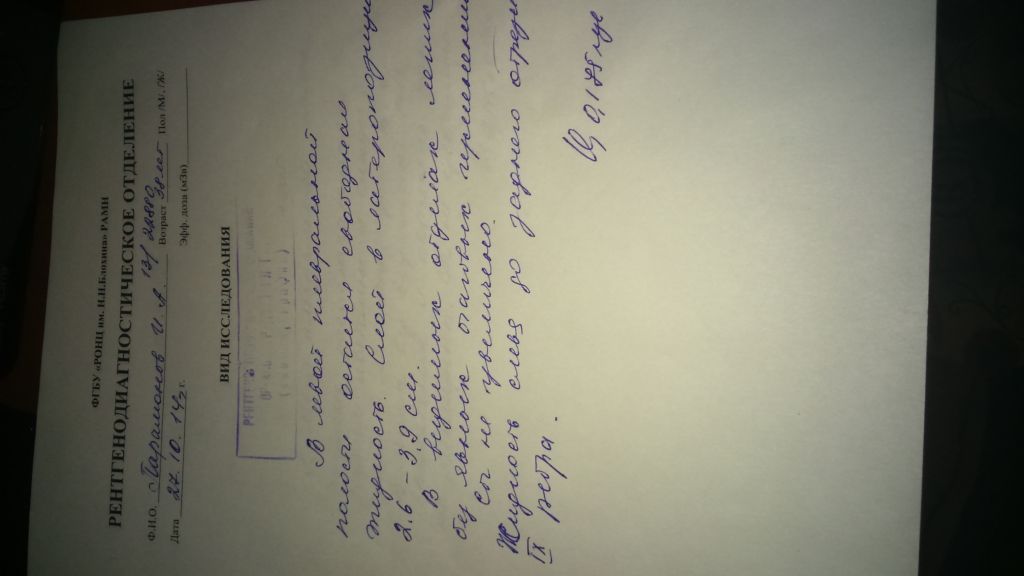 ФГБУ «РОНЦ им. Н.Н.Блохина» РАМН
РЕНТГЕНОДИАГНОСТИЧЕСКОЕ ОТДЕЛЕНИЕ
Ф.И.О. Парамонов И. А. 13/22889
Возраст 38 лет Пол /М/, /Ж/
Дата 27. 10. 14 г.
Эфф. доза (мЗв)
ВИД ИССЛЕДОВАНИЯ
В левой плевральной
полости остается свободная
жидкость. Слой в латеропозиции
2.6 - 3.9 см.
В видимых отделах легких
без явных очаговых изменений.
Сы не увеличено.
Жидкость слева до заднего отрезка
IX ребра.